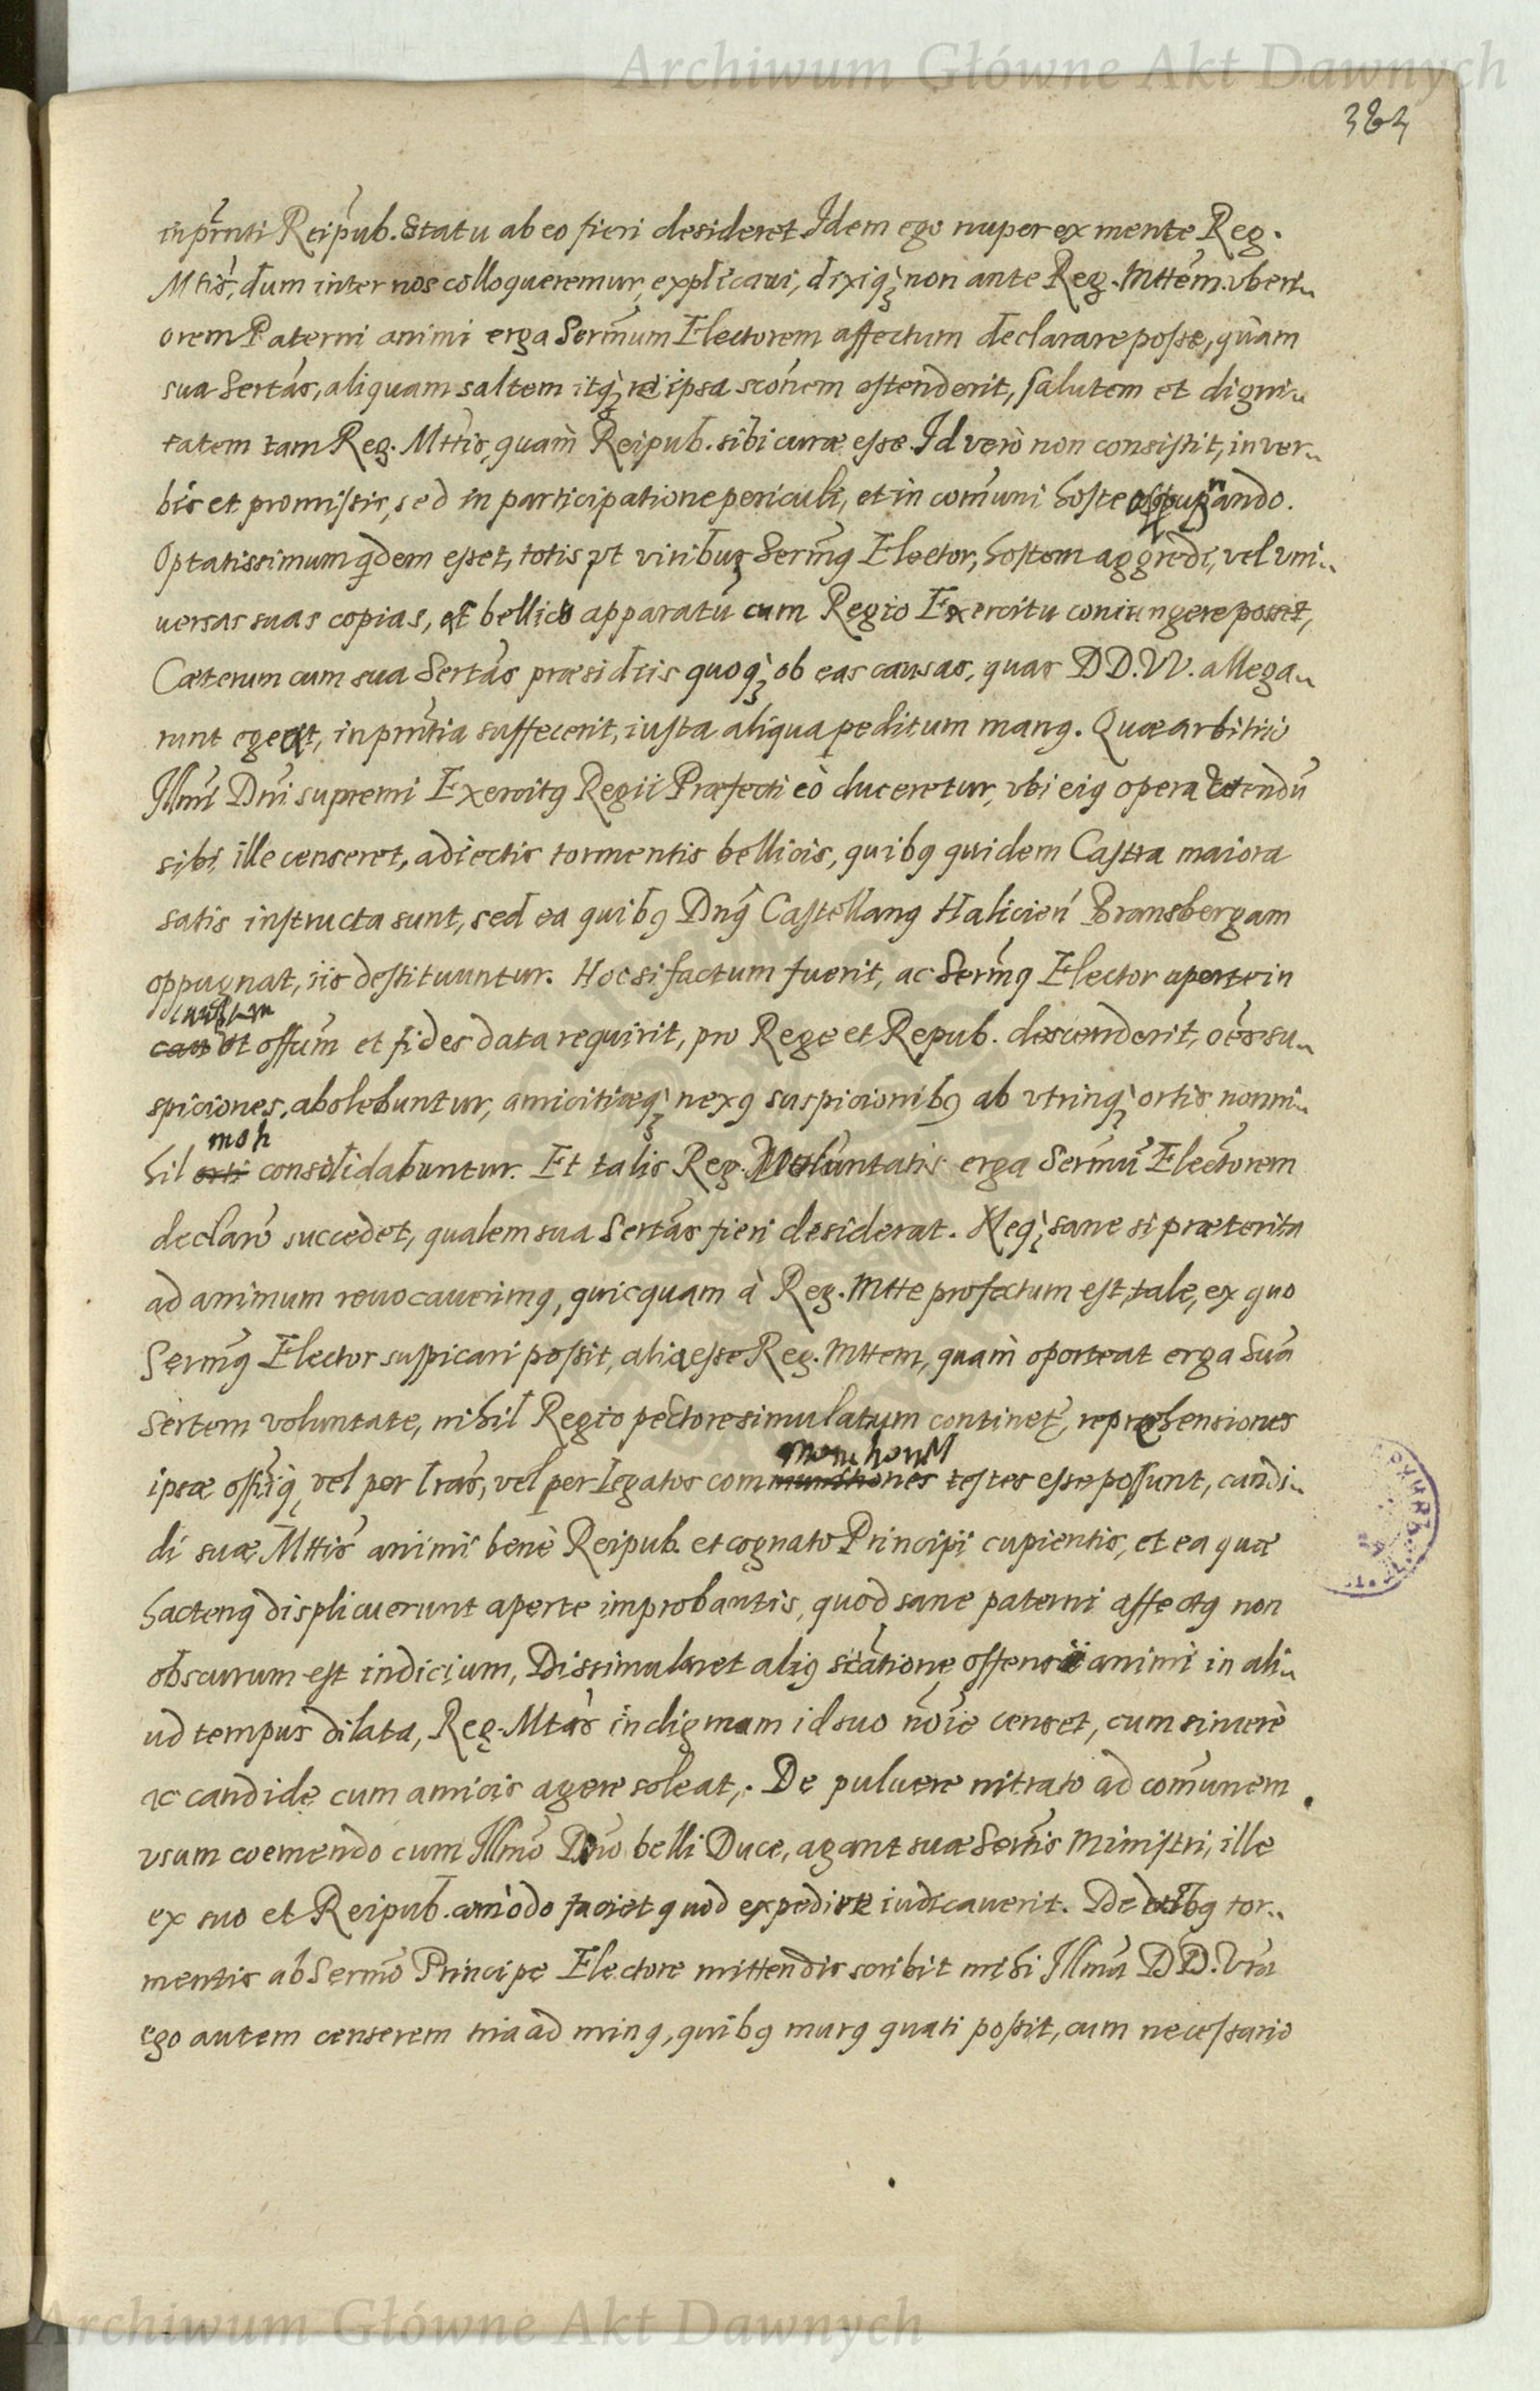 Archiwum Główne Akt Dawnych
383
in pr̃nti Reipub. Statu ab eo fieri desideret. Idem ego nuper ex mente Reg.
Mttis, dum inter nos colloqueremur, explicaui, dixiq; non ante Reg. Mttem. vberi„
orem Paterni animi erga Sermum Electorem affectum declarare posse, quàm
sua Sertas, aliquam saltem itq; re ipsa sconem ostenderit, salutem et digni„
tatem tam Reg. Mttis, quam Reipub. sibi curæ esse. Id verò non consistit, in ver„
bis et promissis, sed in participatione periculi, et in comuni hoste oppugnando.
Optatissimum qdem esset, totis vt viribus Sermq Elector, hostem aggredi, vel vni„
uersas suas copias, et bellico apparatu cum Regio Exercitu coniungere posset,
Cæterum cum sua Sertas præsidiis quoq; ob eas causas, quas DD. VV. allega„
runt egeat, in prntia suffecerit, iusta aliqua peditum manq. Quæ arbitrio
Illmi Dni supremi Exercitq Regii Præfecti eò duceretur, vbi eiq opera vtendu
sibi ille censeret, adiectis tormentis bellicis, quibq quidem Castra maiora
satis instructa sunt, sed ea quibq Dnq Castellanq Halicien Bransbergam
oppugnat, iis destituuntur. Hoc si factum fuerit, ac Sermq Elector aperte in
vt offum et fides data requirit, pro Rege et Repub. descenderit, oes su„
spiciones, abolebuntur, amicitiæq; nexq suspicionibq ab vtrinq; ortis nonni„
hil consolidabuntur. Et talis Reg. Voluntatis erga Sermu Electorem
declaro succedet, qualem sua Sertas fieri desiderat. Neq; sane si præterita
ad animum reuocauerimq, quicquam à Reg. Mtte profectum est, tale, ex quo
Sermq Elector suspicari possit, alia esse Reg. Mttem, quam oporteat erga Sua
Sertem voluntate, nihil Regio pectore simulatum continet, reprehensiones
ipsæ vel per lras, vel per Legatos testes esse possunt, candi„
di suæ Mttis animi benè Reipub. et cognato Principi cupientis, et ea quæ
hactenq displicuerunt aperte improbantis, quod sane paterni affectq non
obscurum est indicium, Dissimularet aliq offensi animi in ali„
ud tempus dilata, Reg. Mtas indignam id suo noie censet, cum sincerè
ac candide cum amicis agere soleat,. De puluere nitrato ad comunem
vsum coemendo cum Illmo Dno belli Duce, agant suæ Sertis Ministri, ille
ex suo et Reipub. comodo faciet quod expedire iudicauerit. De tor„
mentis ab Sermo Principe Electore mittendis scribit mihi Illma DD. Vra
ego autem censerem tria ad minq, quibq murq quati possit, cum necessario
Archiwum Główne Akt Dawnych